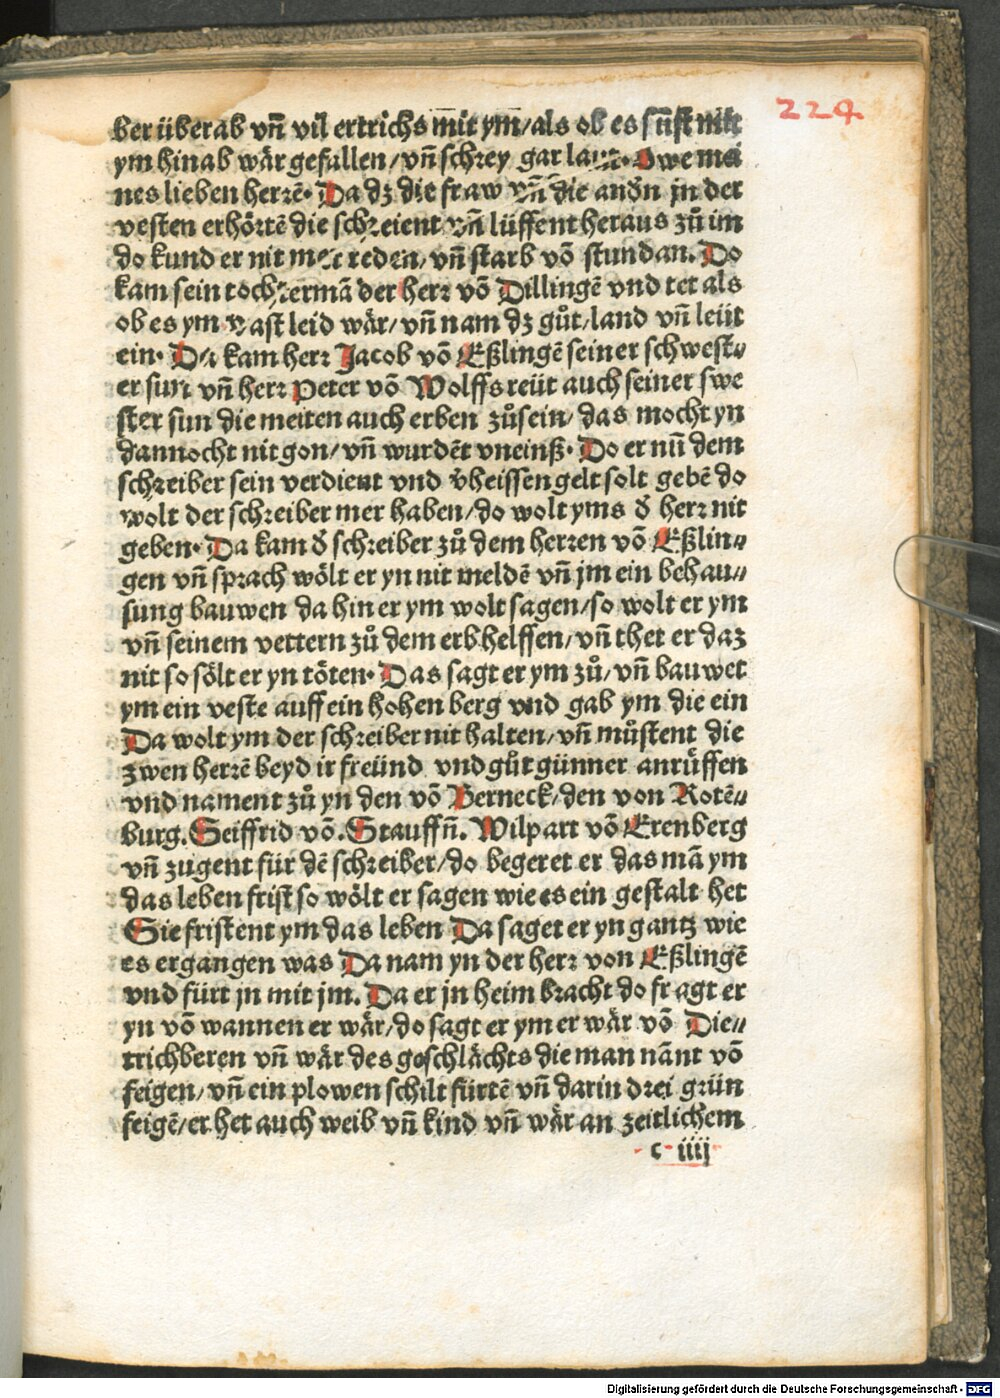 224
ber überab vñ vil ertrichs mit ym/als ob es sunst mit
ym hinab wär gefallen/vñ schrey gar laut. Owe mei
nes lieben herrē. Da dz die fraw vñ die andn in der
vesten erhörtē die schreient vñ lüffent heraus zů im
do kund er nit mer reden/vñ starb vō stundan. Do
kam sein tochtermā der herr vō Dillingē vnd tet als
ob es ym vast leid wär/vñ nam dz gůt/land vñ leüt
ein. Da kam herr Jacob vō Eßlingē seiner schwest//
er sun vñ herr Peter vō Wolffs reüt auch seiner swe
ster sun die meiten auch erben zůsein/das mocht yn
dannocht nit gon/vñ wurdēt vneinß. Do er nū dem
schreiber sein verdient vnd v̄heissen gelt solt gebē do
wolt der schreiber mer haben/do wolt yms d̄ herr nit
geben. Da kam d̄ schreiber zů dem herren vō Eßlin//
gen vñ sprach wölt er yn nit meldē vñ jm ein behau//
sung bauwen da hin er ym wolt sagen/so wolt er ym
vñ seinem vettern zů dem erb helffen/vñ thet er daz
nit so sölt er yn töten. Das sagt er ym zů/vñ bauwet
ym ein veste auff ein hohen berg vnd gab ym die ein
Da wolt ym der schreiber nit halten/vñ můstent die
zwen herrē beyd ir freünd vnd gůt günner anrüffen
vnd nament zů yn den vō Berneck/den von Rotē//
burg. Seiffrid vō. Stauffñ. Wilpart vō Erenberg
vñ zugent für dē schreiber/do begeret er das mā ym
das leben frist so wölt er sagen wie es ein gestalt het
Sie fristent ym das leben Da saget er yn gantz wie
es ergangen was Da nam yn der herr von Eßlingē
vnd fürt jn mit jm. Da er jn heim bracht do fragt er
yn vō wannen er wär/do sagt er ym er wär vō Die//
trichberen vñ wär des geschlächts die man nānt vō
feigen/vñ ein plowen schilt fürtē vñ darin drei grün
feigē/er het auch weib vñ kind vñ wär an zeitlichem
c iiij
Digitalisierung gefördert durch die Deutsche Forschungsgemeinschaft - DFG